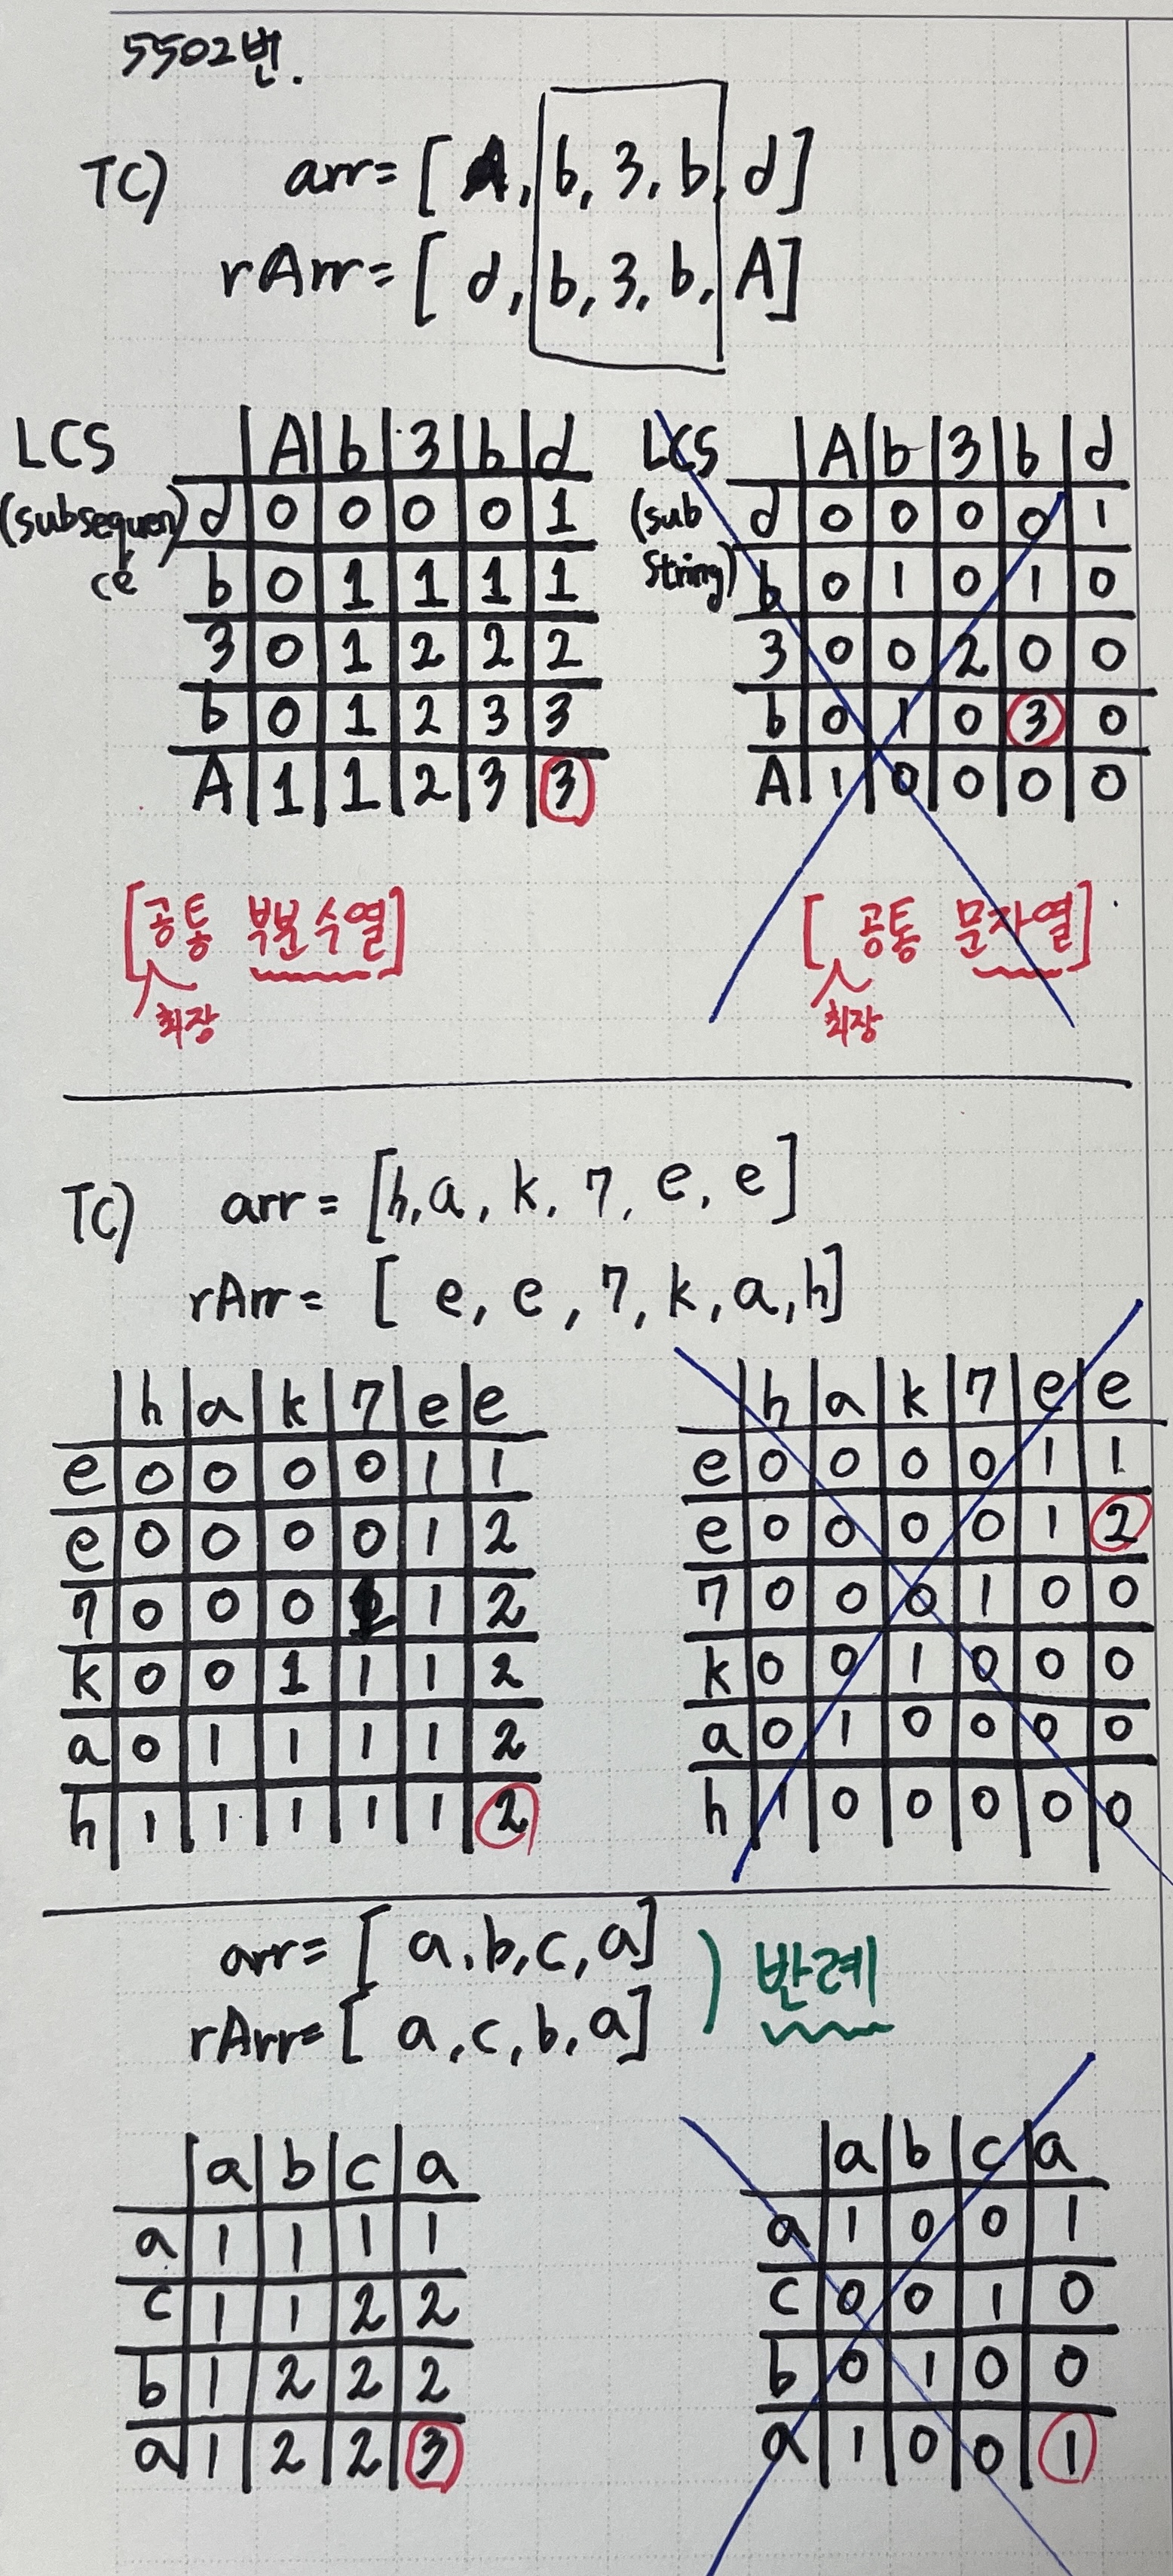 5502번.
TC) arr= [ A, b, 3, b, d]
rArr= [ d, b, 3, b, A]
LCS
(subsequen)
ce
A b 3 b d
d 0 0 0 0 1
b 0 1 1 1 1
3 0 1 2 2 2
b 0 1 2 3 3
A 1 1 2 3 3
[공통 부분수열]
최장
LCS
(sub
String)
A b 3 b d
d 0 0 0 0 1
b 0 1 0 1 0
3 0 0 2 0 0
b 0 1 0 3 0
A 1 0 0 0 0
[ 공통 문자열]
최장
TC) arr = [h, a, k, 7, e, e]
rArr = [ e, e, 7, k, a, h]
h a k 7 e e
e 0 0 0 0 1 1
e 0 0 0 0 1 2
7 0 0 0 1 1 2
k 0 0 1 1 1 2
a 0 1 1 1 1 2
h 1 1 1 1 1 2
h a k 7 e e
e 0 0 0 0 1 1
e 0 0 0 0 1 2
7 0 0 0 1 0 0
k 0 0 1 0 0 0
a 0 1 0 0 0 0
h 1 0 0 0 0 0
arr= [ a, b, c, a]
rArr= [ a, c, b, a]
) 반례
a b c a
a 1 1 1 1
c 1 1 2 2
b 1 2 2 2
a 1 2 2 3
a b c a
a 1 0 0 1
c 0 0 1 0
b 0 1 0 0
a 1 0 0 1